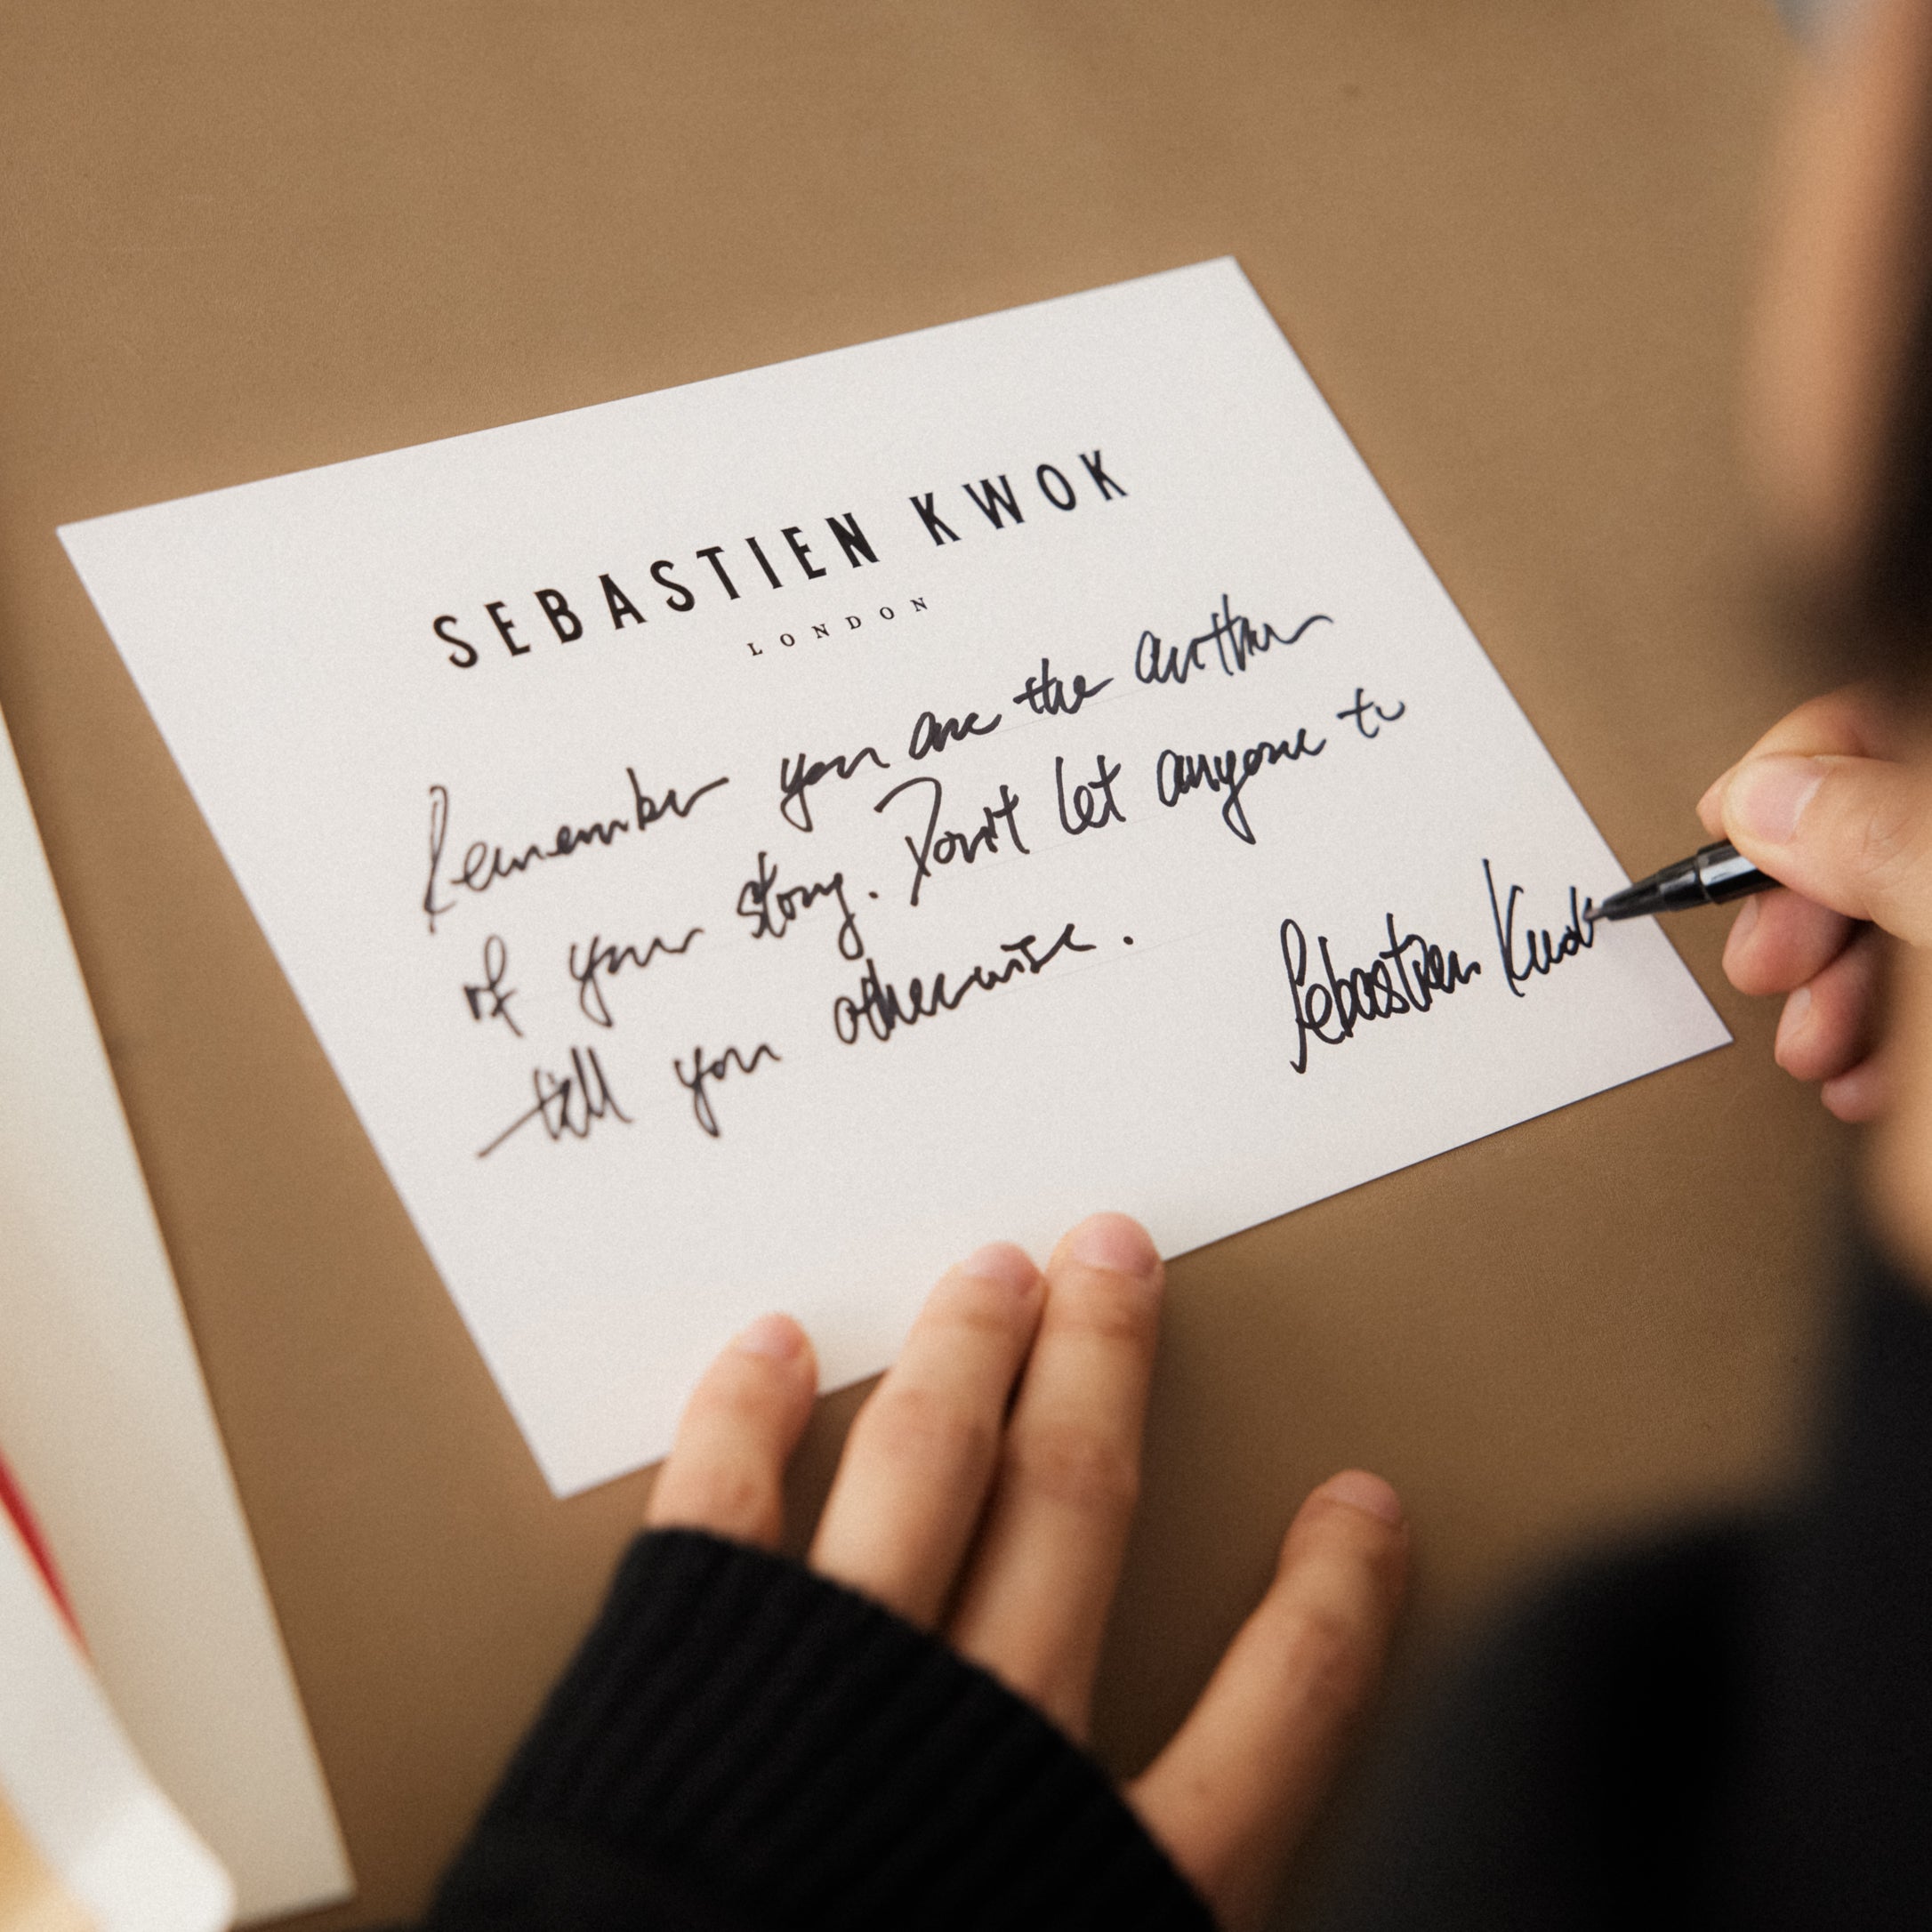 SEBASTIEN KWOK
LONDON
Remember you are the author
of your story. Don't let anyone to
tell you otherwise.
Sebastien Kwok